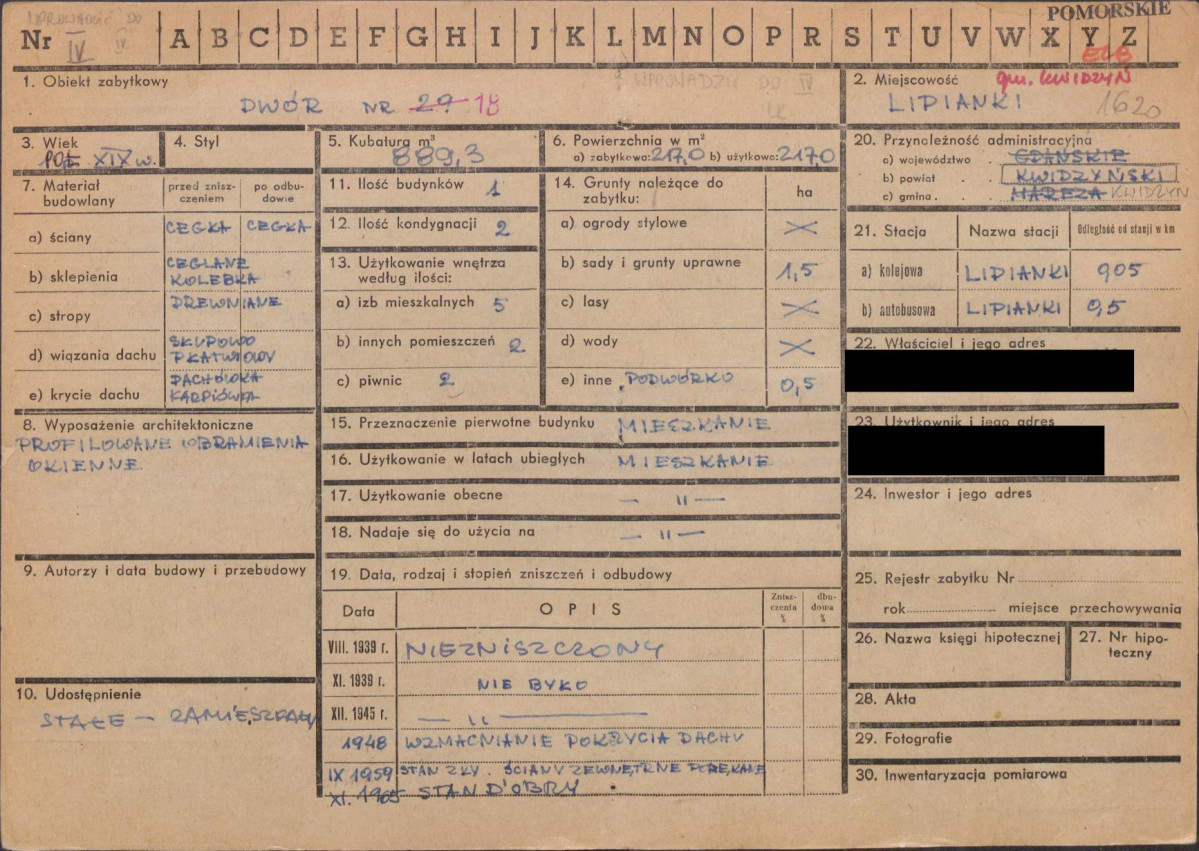 WPROWADZIĆ DO IV
POMORSKIE
Nr IV IV A B C D E F G H I J K L M N O P R S T U V W X Y Z
ELB
1. Obiekt zabytkowy
WPROWADZIĆ DO IV
DWÓR NR 29 18
2. Miejscowość gm. KWIDZYN
LIPIANKI 1620
3. Wiek
POŁ. XIX w.
4. Styl
5. Kubatura m³
889,3
6. Powierzchnia w m²
a) zabytkowa: 217,0 b) użytkowa: 217,0
20. Przynależność administracyjna
a) województwo GDAŃSKIE
b) powiat KWIDZYŃSKI
c) gmina MAREZA KWIDZYN
7. Materiał budowlany
przed zniszczeniem
po odbudowie
a) ściany CEGŁA CEGŁA
b) sklepienia CEGLANE
KOLEBKA
c) stropy DREWNIANE
d) wiązania dachu
e) krycie dachu DACHÓWKA
KARPIÓWKA
11. Ilość budynków 1
12. Ilość kondygnacji 2
13. Użytkowanie wnętrza
według ilości:
a) izb mieszkalnych 5
b) innych pomieszczeń 2
c) piwnic 2
14. Grunty należące do
zabytku: ha
a) ogrody stylowe X
b) sady i grunty uprawne 1,5
c) lasy X
d) wody X
e) inne PODWÓRKO 0,5
21. Stacja Nazwa stacji Odległość od stacji w km
a) kolejowa LIPIANKI 905
b) autobusowa LIPIANKI 0,5
22. Właściciel i jego adres
23. Użytkownik i jego adres
8. Wyposażenie architektoniczne
PROFILOWANE OBRAMIENIA
OKIENNE
15. Przeznaczenie pierwotne budynku MIESZKANIE
16. Użytkowanie w latach ubiegłych MIESZKANIE
17. Użytkowanie obecne — " —
18. Nadaje się do użycia na — " —
24. Inwestor i jego adres
9. Autorzy i data budowy i przebudowy
19. Data, rodzaj i stopień zniszczeń i odbudowy
Data OPIS Zniszczenia % dbudowa %
VIII. 1939 r. NIEZNISZCZONY
XI. 1939 r. NIE BYŁO
XII. 1945 r. — " —
1948 WZMACNIANIE POKRYCIA DACHU
IX 1959 STAN ZŁY. ŚCIANY ZEWNĘTRZNE POPĘKANE
XI. 1965 STAN DOBRY
10. Udostępnienie
STAŁE — ZAMIESZKAŁY
25. Rejestr zabytku Nr
rok miejsce przechowywania
26. Nazwa księgi hipotecznej
27. Nr hipoteczny
28. Akta
29. Fotografie
30. Inwentaryzacja pomiarowa